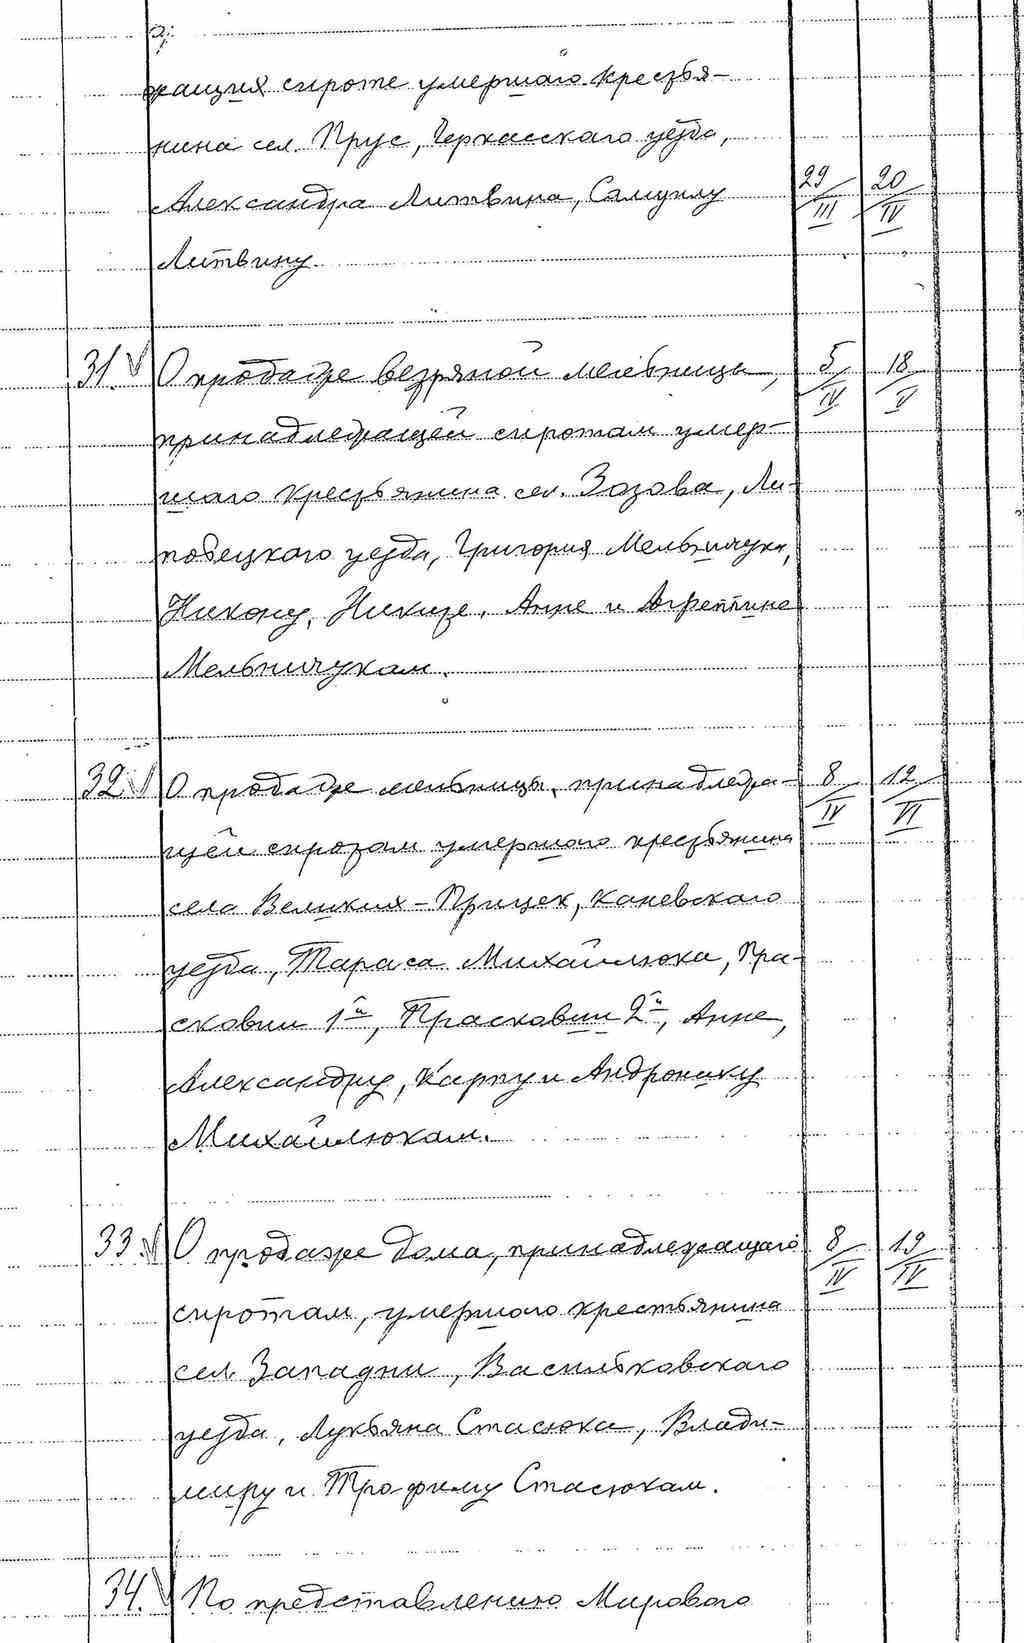 2)
жащия сироте умершаго крестья-
нина сел. Прус, Черкасскаго уезда,
Александра Литвина, Самуилу 29/III 20/IV
Литвину.
31. О продаже ветряной мельницы, 5/IV 18/V
принадлежащей сиротам умер-
шаго крестьянина сел. Зозова, Ли-
повецкаго уезда, Григория Мельничука,
Никону, Никите, Анне и Агреппине
Мельничукам.
32. О продаже мельницы, принадлежа- 8/IV 12/VI
щей сиротам умершаго крестьянина
села Великих-Прицек, Каневскаго
уезда, Тараса Михайлюка, Пра-
сковии 1й, Прасковии 2й, Анне,
Александру, Карпу и Андронику
Михайлюкам.
33. О продаже дома, принадлежащаго 8/IV 19/IV
сиротам, умершаго крестьянина
сел. Западни, Васильковскаго
уезда, Лукьяна Стасюка, Влади-
миру и Трофиму Стасюкам.
34. По представлению Мирового